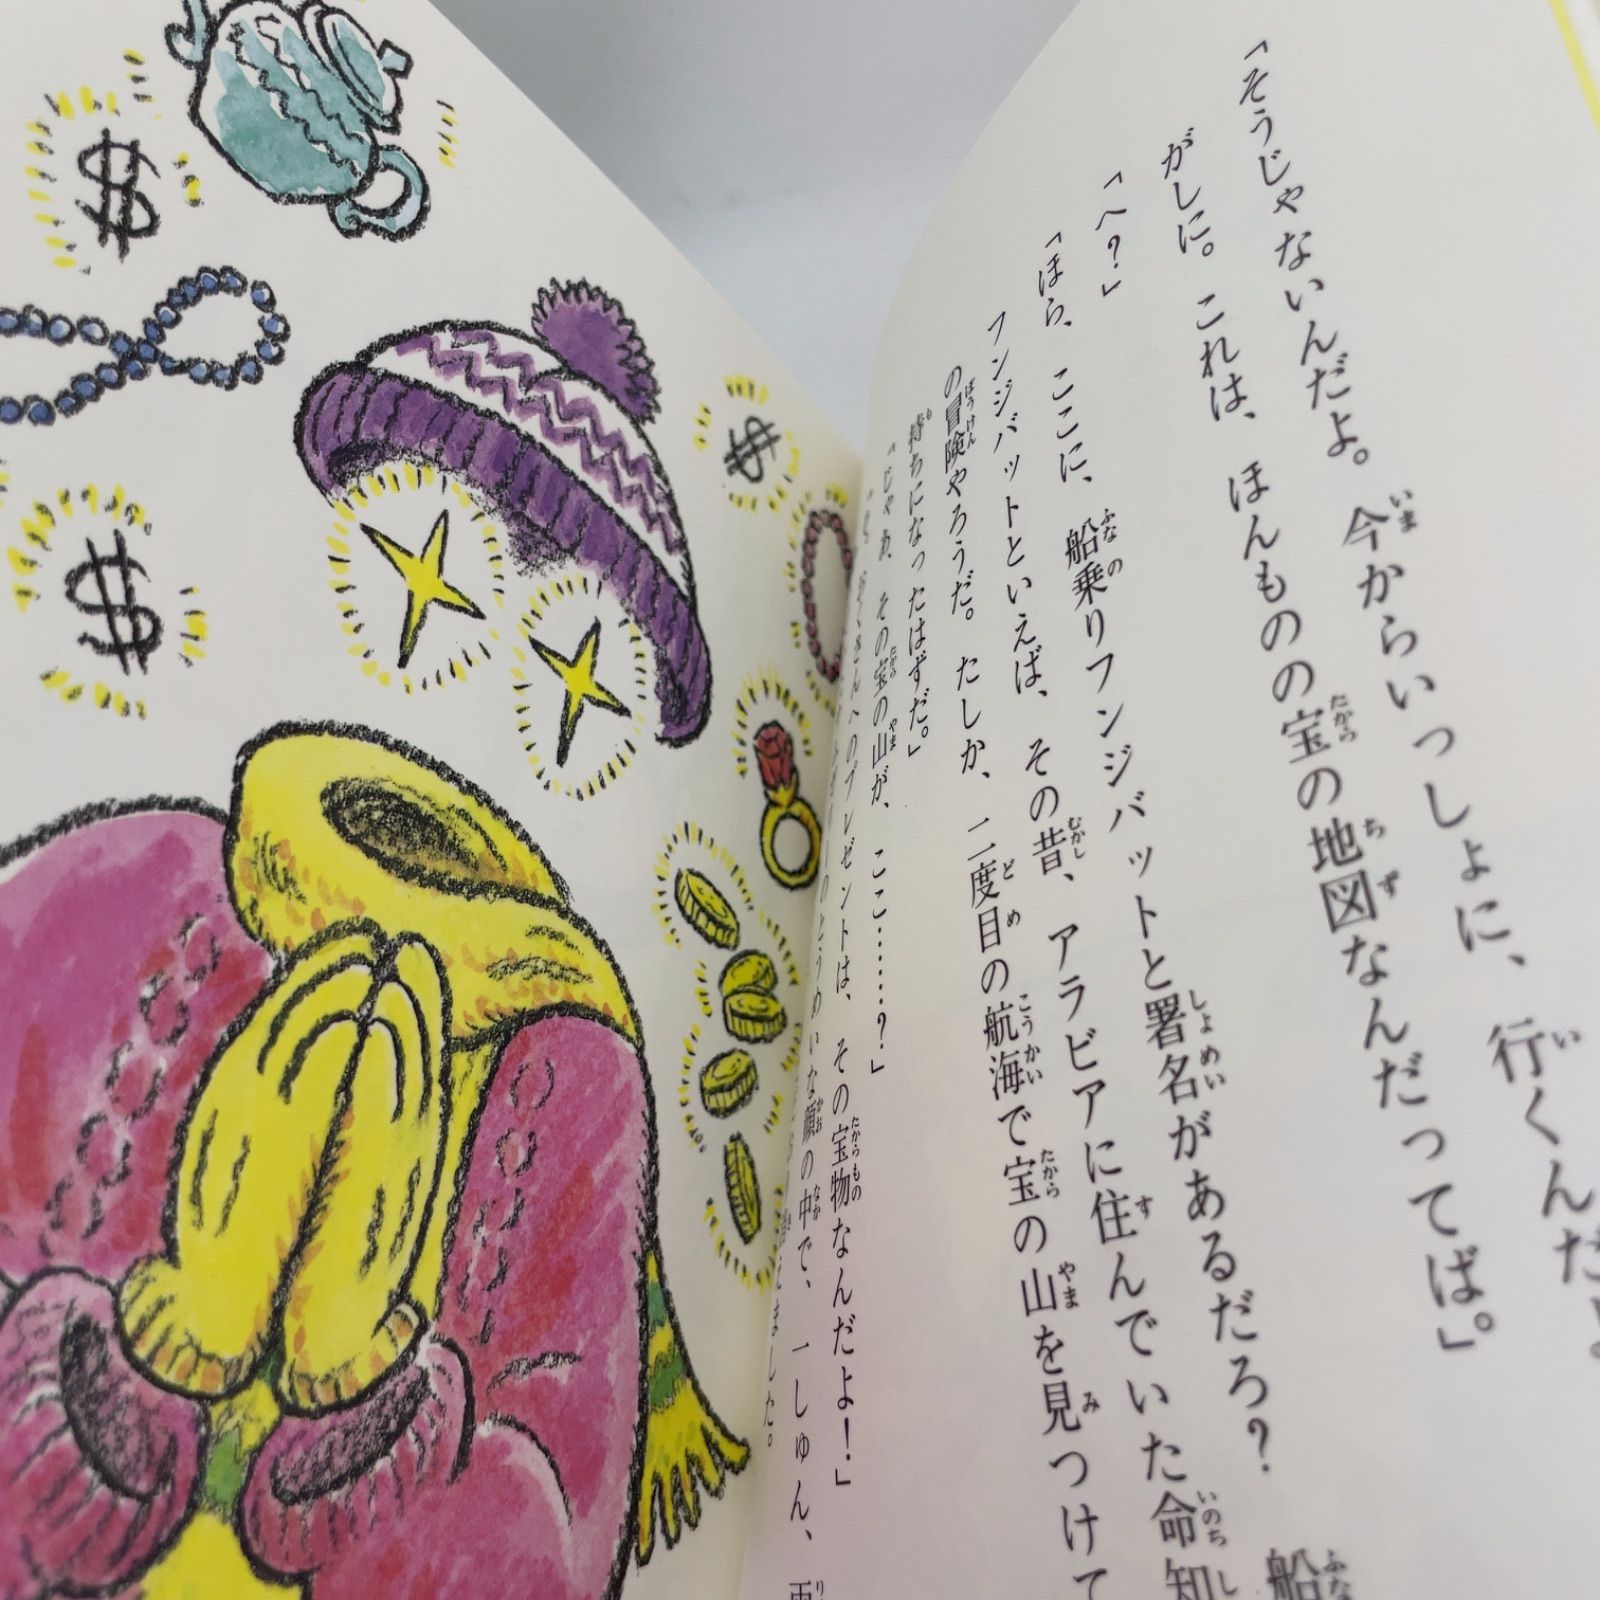 「そうじゃないんだよ。今からいっしょに、行くんだよ
がしに。これは、ほんものの宝の地図なんだってば。」
「へ？」
「ほら、ここに、船乗りフンジバットと署名があるだろ？　船
フンジバットといえば、その昔、アラビアに住んでいた命知
の冒険やろうだ。たしか、二度目の航海で宝の山を見つけて
持ちになったはずだ。」
「じゃあ、その宝の山が、ここ………？」
くさんへのプレゼントは、その宝物なんだよ！」
のとうめいな顔の中で、一しゅん、両
ました。